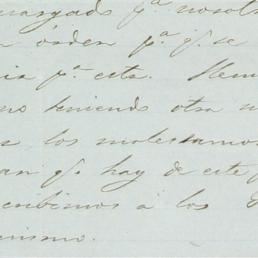 encargado pª nosotr
n órden pª q. se
ia pª esta. Hem
no teniendo otra
los molestamos
an q. hay de este
cribimos a los
mismo.